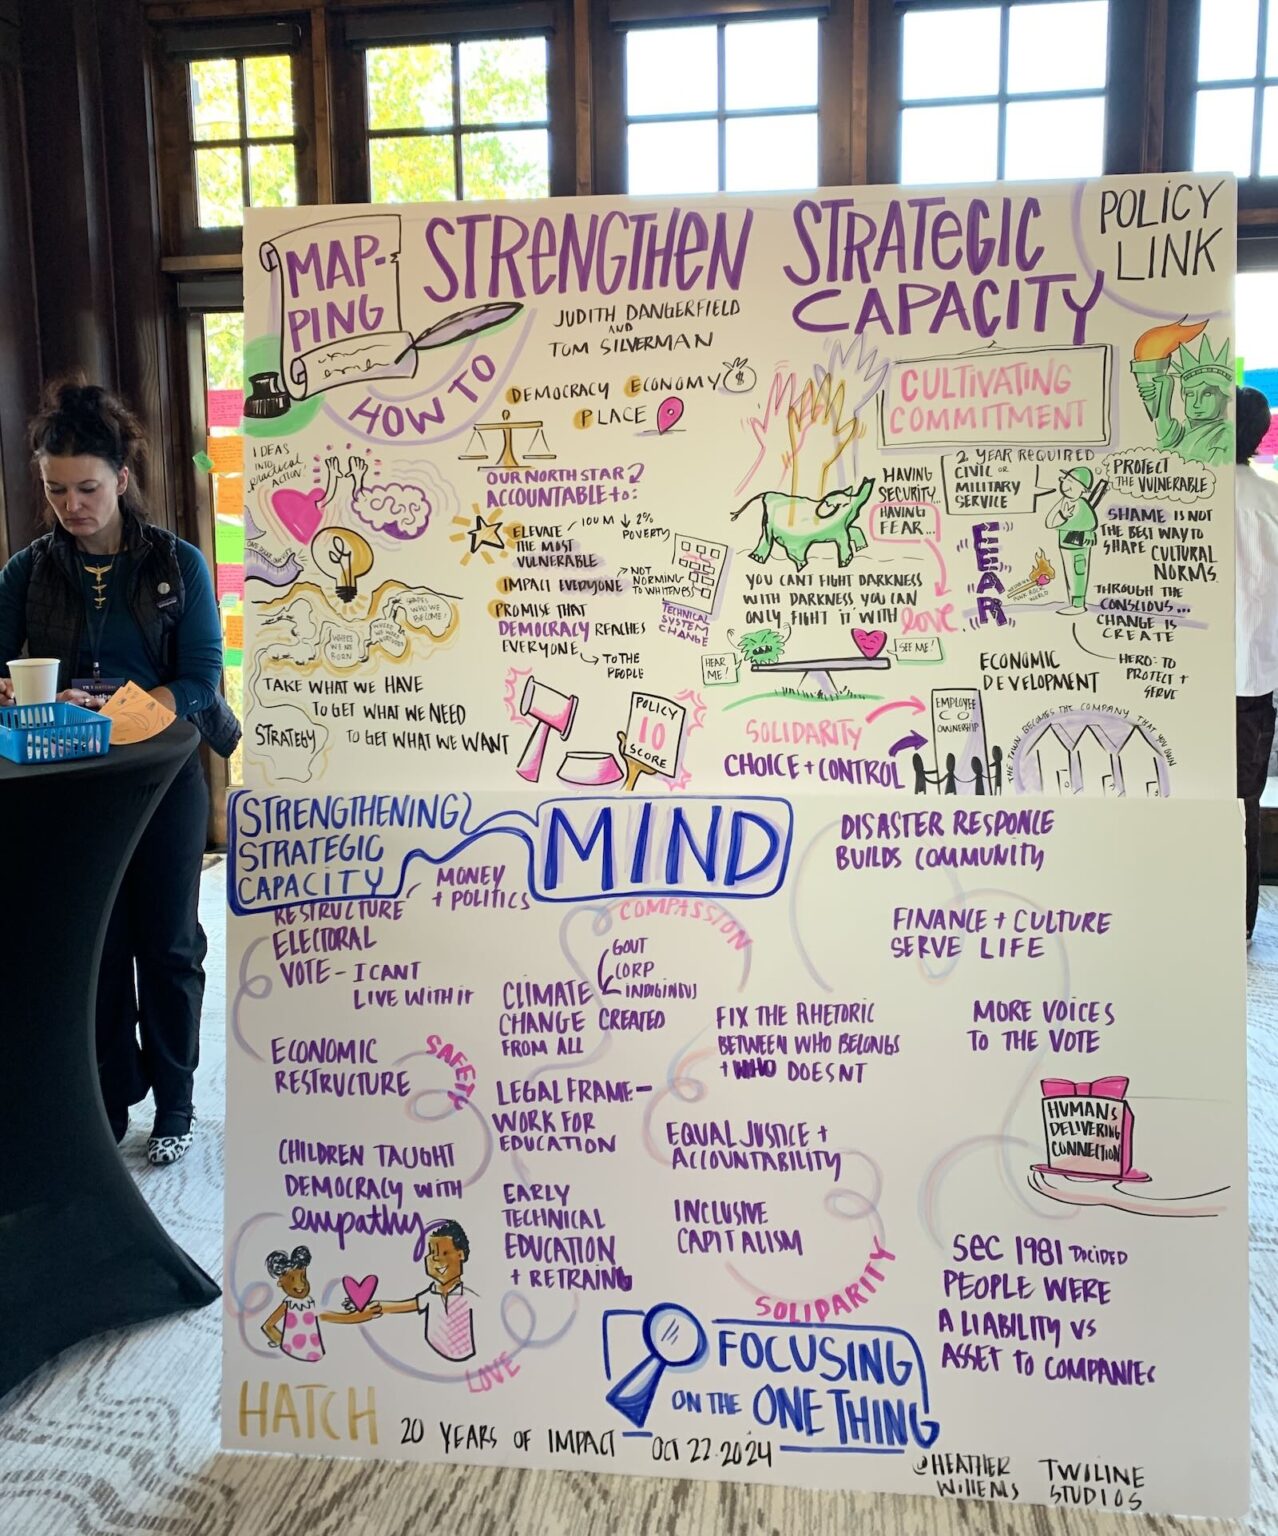 MAP-
PING
HOW TO
STRENGTHEN STRATEGIC
CAPACITY
POLICY
LINK
JUDITH DANGERFIELD
AND
TOM SILVERMAN
DEMOCRACY ECONOMY $
PLACE
IDEAS
INTO
practical
ACTION!
OUR NORTH STAR
ACCOUNTABLE to:
ELEVATE
THE MOST
VULNERABLE
100 M ↓ 2%
POVERTY
IMPACT EVERYONE
NOT
NORMING
TO WHITENESS
PROMISE THAT
DEMOCRACY REACHES
EVERYONE
TO THE
PEOPLE
TECHNICAL
SYSTEM
CHANGE
WHERE
WE'RE
BORN
SHAPES WHO WE
BECOME!
TAKE WHAT WE HAVE
TO GET WHAT WE NEED
TO GET WHAT WE WANT
STRATEGY
POLICY
10
SCORE
CULTIVATING
COMMITMENT
HAVING
SECURITY...
HAVING
FEAR...
YOU CAN'T FIGHT DARKNESS
WITH DARKNESS, YOU CAN
ONLY FIGHT IT WITH love.
HEAR
ME!
SEE ME!
2 YEAR REQUIRED
CIVIC OR
MILITARY
SERVICE
FEAR
PUNK ROCK
WORLD
PROTECT
THE VULNERABLE
SHAME IS NOT
THE BEST WAY TO
SHAPE CULTURAL
NORMS.
THROUGH THE
CONSCIOUS...
CHANGE IS
CREATE
HERO: TO
PROTECT +
SERVE
ECONOMIC
DEVELOPMENT
SOLIDARITY
CHOICE + CONTROL
EMPLOYEE
CO
OWNERSHIP
THE TOWN BECOMES THE COMPANY THAT YOU OWN
STRENGTHENING
STRATEGIC
CAPACITY
MIND
RESTRUCTURE
ELECTORAL
VOTE - I CANT
LIVE WITH IT
MONEY
+ POLITICS
COMPASSION
DISASTER RESPONCE
BUILDS COMMUNITY
FINANCE + CULTURE
SERVE LIFE
CLIMATE
CHANGE CREATED
FROM ALL
GOVT
CORP
INDIGINOUS
FIX THE RHETORIC
BETWEEN WHO BELONGS
+ WHO DOESNT
MORE VOICES
TO THE VOTE
ECONOMIC
RESTRUCTURE
SAFETY
LEGAL FRAME-
WORK FOR
EDUCATION
EQUAL JUSTICE +
ACCOUNTABILITY
HUMANS
DELIVERING
CONNECTION
CHILDREN TAUGHT
DEMOCRACY WITH
empathy
EARLY
TECHNICAL
EDUCATION
+ RETRAINING
INCLUSIVE
CAPITALISM
SOLIDARITY
SEC 1981 DICIDED
PEOPLE WERE
A LIABILITY VS
ASSET TO COMPANIES
LOVE
FOCUSING
ON THE ONE THING
HATCH 20 YEARS OF IMPACT - OCT 22.2024
@HEATHER
WILLEMS
TWILINE
STUDIOS